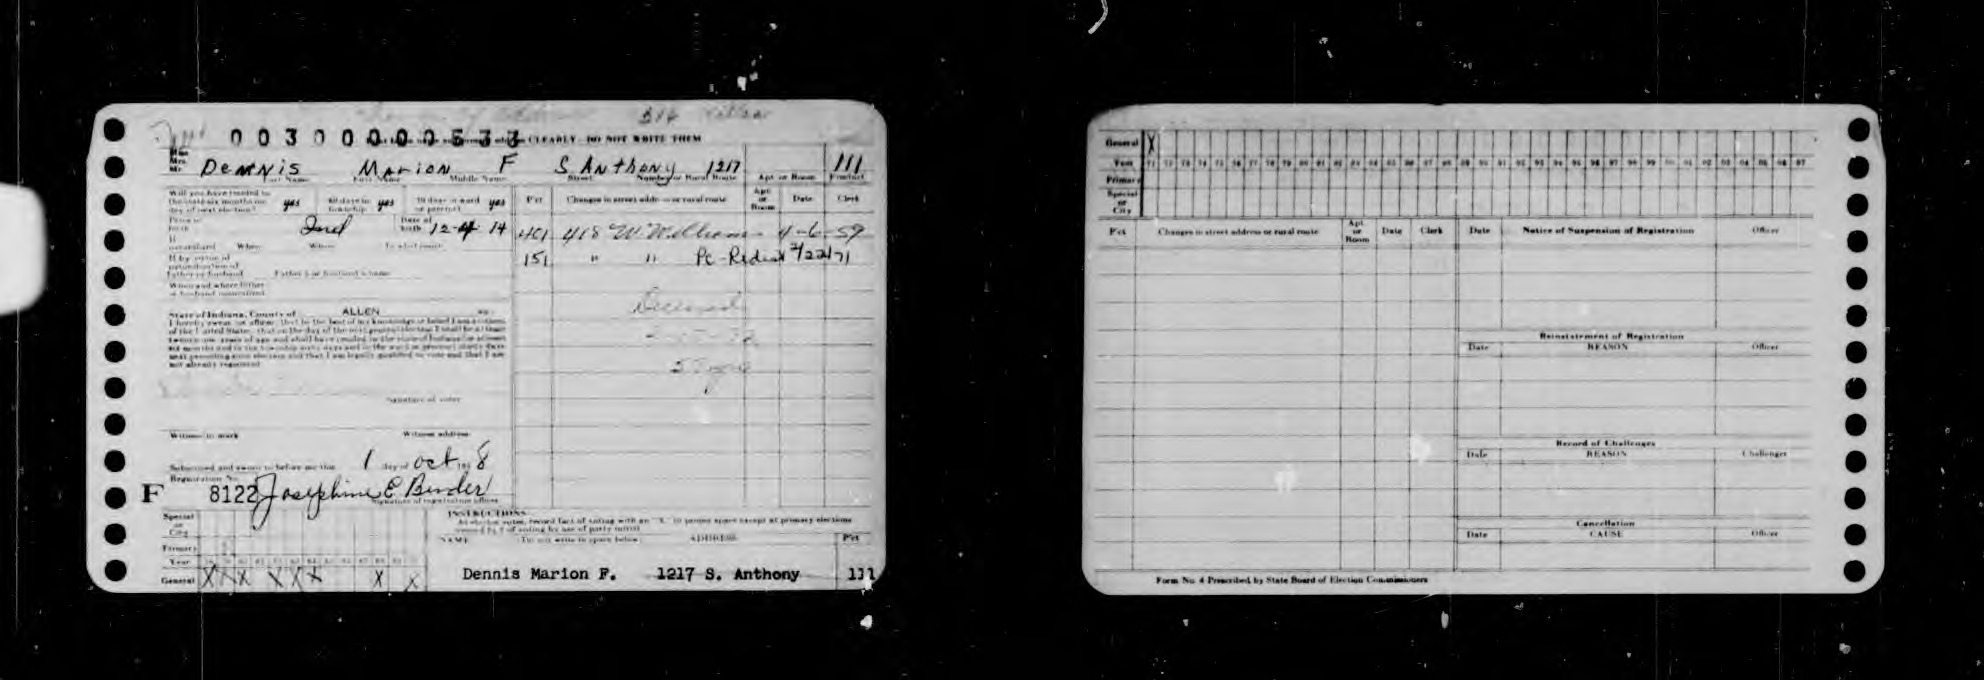 00300000533
CLEARLY - DO NOT WRITE THEM
Miss
Mrs.
Mr.
DENNIS MARION F S ANTHONY 1217 111
Last Name First Name Middle Name Street Number or Rural Route Apt or Room Precinct
Will you have resided in
the state six months on
day of next election? yes 60 days in
township yes 30 days in ward
or precinct yes
Pct Changes in street address or rural route Apt
or
Room Date Clerk
Place of
birth Ind Date of
birth 12-4-14
401 418 W. Williams 4-6-59
151 " " Pc-Redist 2/22/71
If
naturalized When Where To what court
If by virtue of
naturalization of
Father or husband Father's or husband's name
When and where father
or husband naturalized
Deceased
57 yrs
State of Indiana, County of ALLEN ss:
I hereby swear or affirm that to the best of my knowledge or belief I am a citizen
of the United States, that on the day of the next general election I shall be at least
twenty-one years of age and shall have resided in the state of Indiana for at least
six months and in the township sixty days and in the ward or precinct thirty days
next preceding such election and that I am legally qualified to vote and that I am
not already registered
Signature of voter
Witness to mark Witness address
Subscribed and sworn to before me this 1 day of Oct 8
Registration No.
F 8122 Josephine E Binder
Signature of registration officer
Special
or
City
Primary
Year
General X X X X X X X X
INSTRUCTIONS
NAME Do not write in space below ADDRESS Pct
Dennis Marion F. 1217 S. Anthony 111
General X
Year 71 72 73 74 75 76 77 78 79 80 81 82 83 84 85 86 87 88 89 90 91 92 93 94 95 96 97 98 99 00 01 02 03 04 05 06 07
Primary
Special
or
City
Pct Changes in street address or rural route Apt
or
Room Date Clerk Date Notice of Suspension of Registration Officer
Reinstatement of Registration
Date REASON Officer
Record of Challenges
Date REASON Challenger
Cancellation
Date CAUSE Officer
Form No. 4 Prescribed by State Board of Election Commissioners